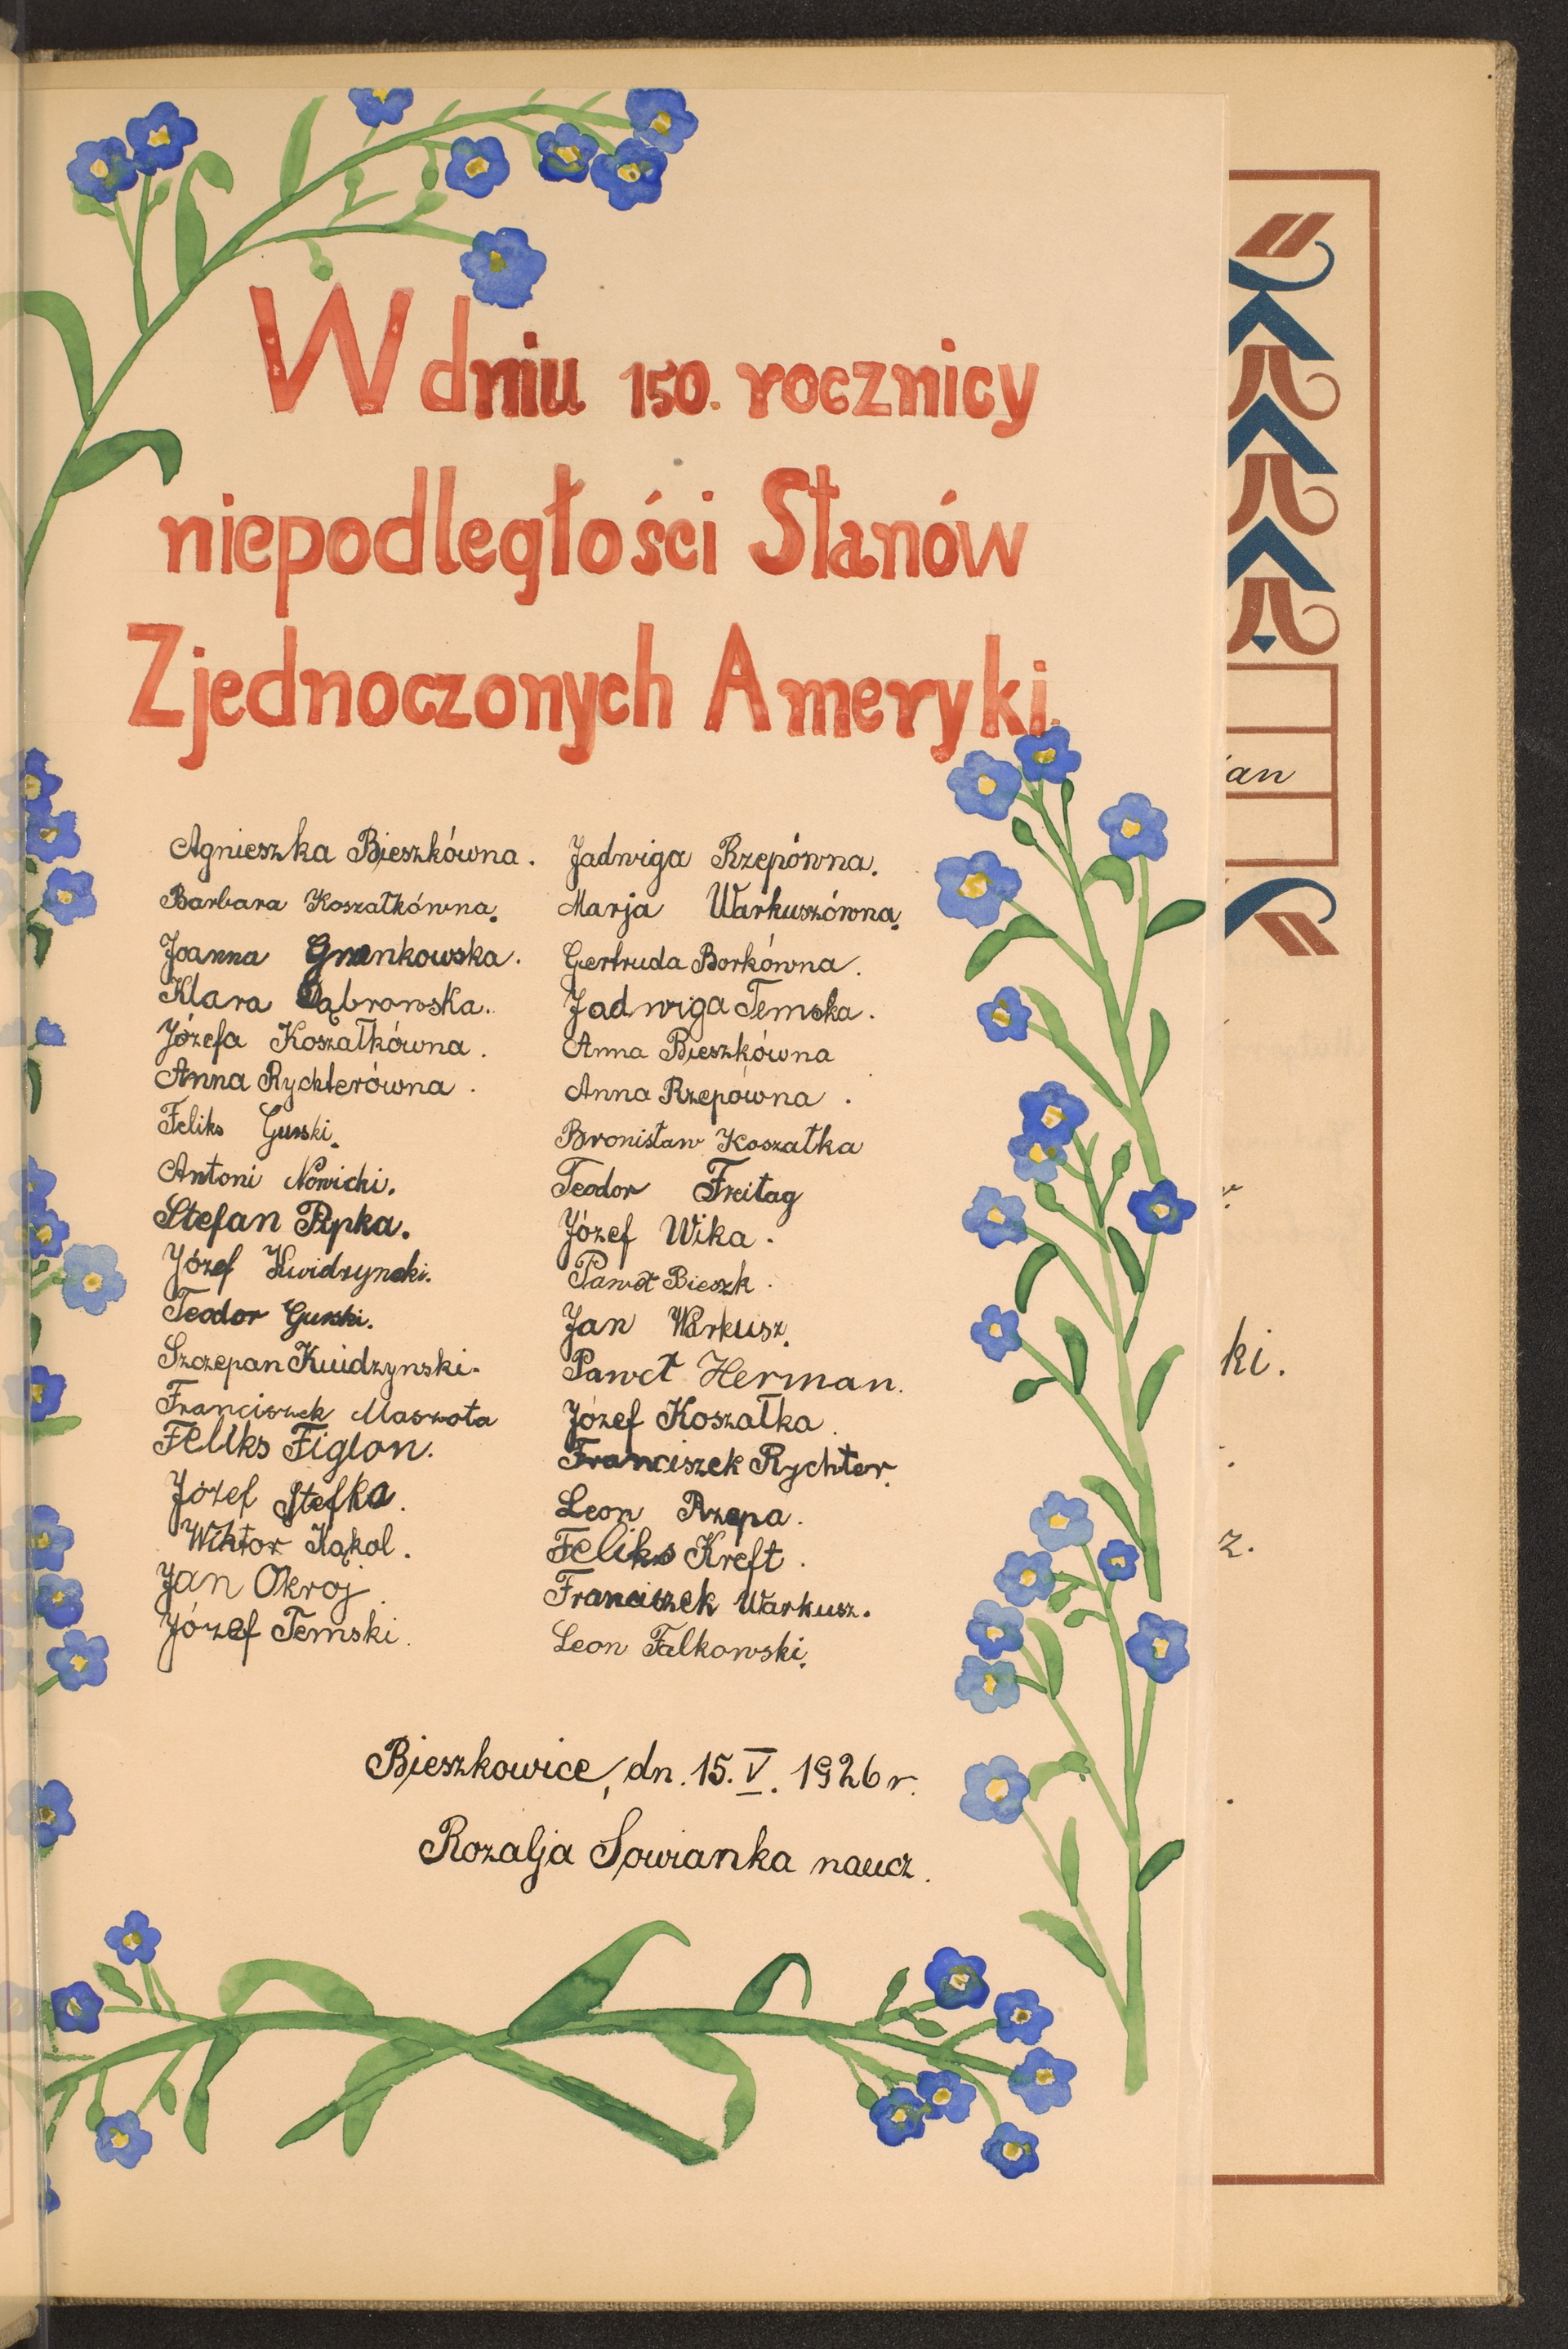 W dniu 150. rocznicy
niepodległości Stanów
Zjednoczonych Ameryki.
Agnieszka Bieszkówna.
Barbara Koszałkówna.
Joanna Grenkowska.
Klara Dąbrowska.
Józefa Koszałkówna.
Anna Rychterówna.
Feliks Gurski.
Antoni Nowicki.
Stefan Pipka.
Józef Kwidzynski.
Teodor Gurski.
Szczepan Kwidzynski.
Franciszek Maszota
Feliks Figlon.
Józef Stefka.
Wiktor Kąkol.
Jan Okroj.
Józef Temski.
Jadwiga Rzepówna.
Marja Warkuszówna.
Gertruda Borkówna.
Jadwiga Temska.
Anna Bieszkówna
Anna Rzepówna.
Bronisław Koszałka
Teodor Freitag
Józef Wika.
Paweł Bieszk.
Jan Warkusz.
Paweł Herman.
Józef Koszałka.
Franciszek Rychter.
Leon Rzepa.
Feliks Kreft.
Franciszek Warkusz.
Leon Falkowski.
Bieszkowice, dn. 15. V. 1926 r.
Rozalja Sowianka naucz.
an
ki.
z.